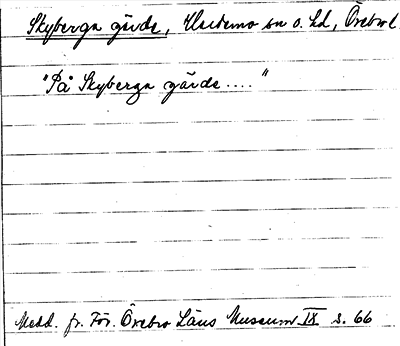 Skyberga gärde, Hardemo sn o. hd, Örebro l.
"På Skyberga gärde...."
Medd. fr. För. Örebro Läns Museum IX s. 66